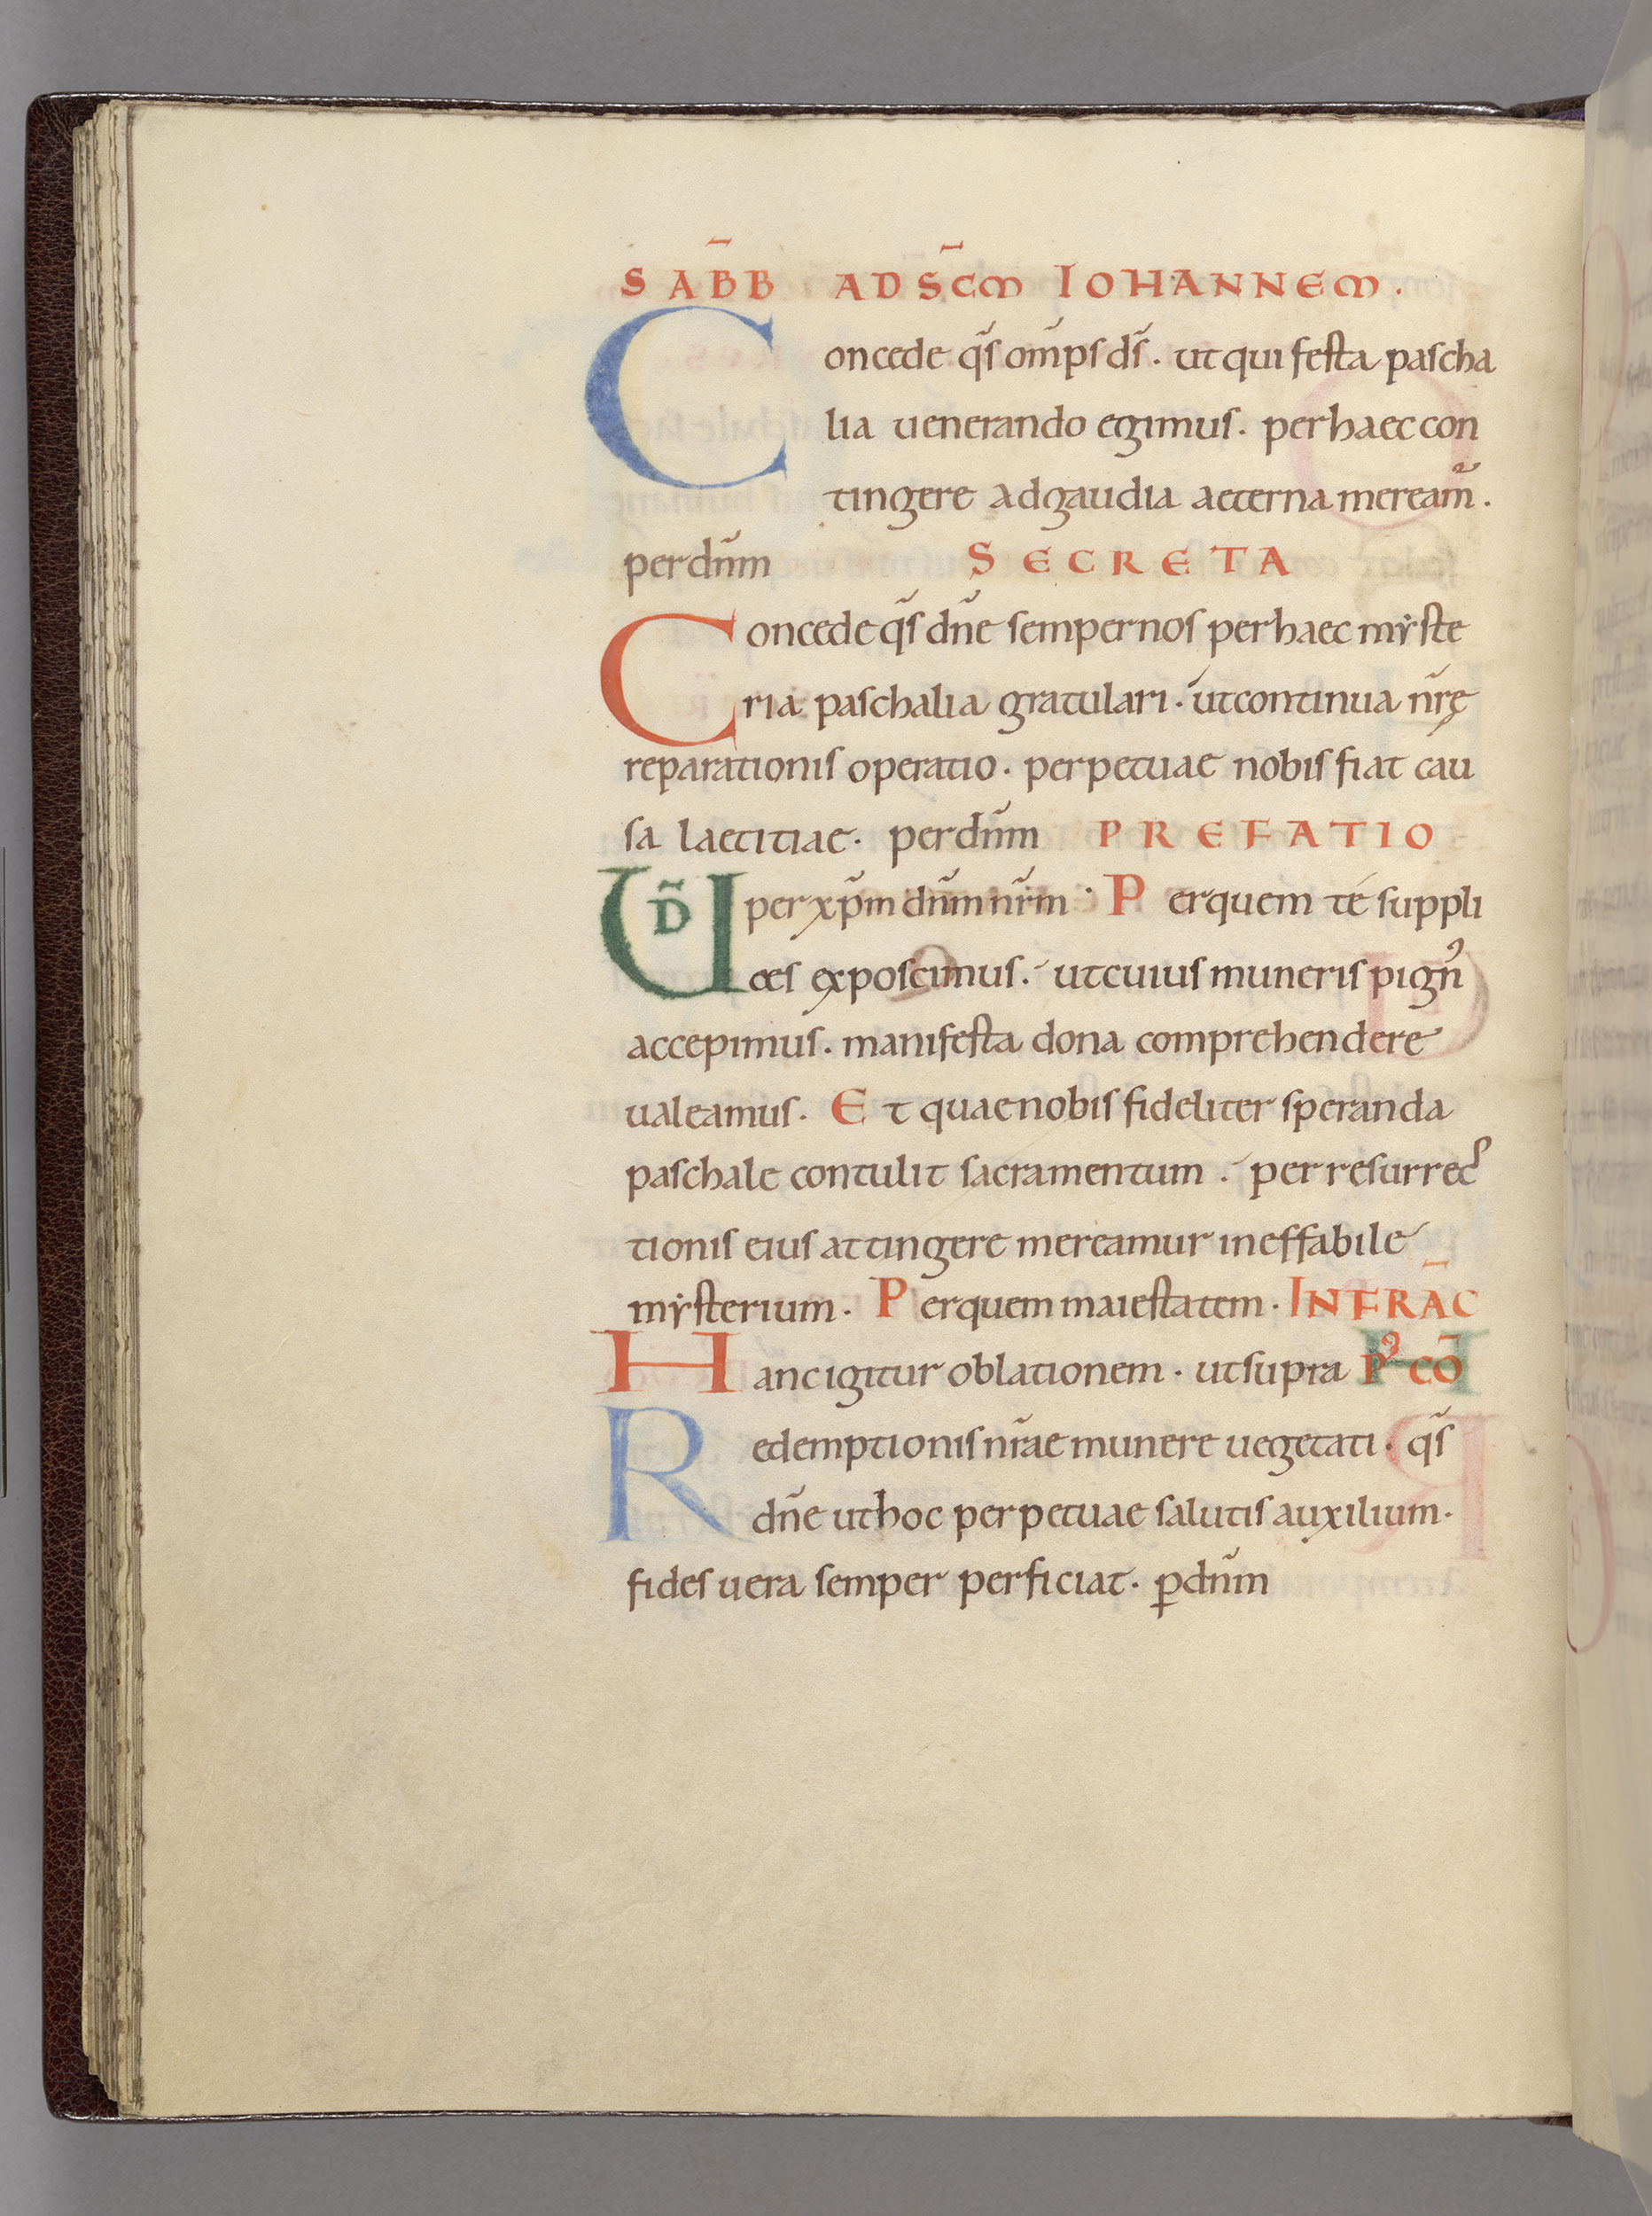 SAB̄B AD SC̄M IOHANNEM.
Concede q̄s om̄ps d̄s. ut qui festa pascha
lia uenerando egimus. per haec con
tingere ad gaudia aeterna meream̄.
per dn̄m SECRETA
Concede q̄s dn̄e semper nos per haec myste
ria paschalia gratulari. ut continua nr̄ę
reparationis operatio. perpetuae nobis fiat cau
sa laetitiae. per dn̄m PREFATIO
UD̄ per xp̄m dn̄m nr̄m. Per quem te suppli
ces exposcimus. ut cuius muneris pign᾽
accepimus. manifesta dona comprehendere
ualeamus. Et quae nobis fideliter speranda
paschale contulit sacramentum. per resurrec
tionis eius attingere mereamur ineffabile
mysterium. Per quem maiestatem. INFRA C̄
Hanc igitur oblationem. ut supra Pꝰ CŌ
Redemptionis nr̄ae munere uegetati. q̄s
dn̄e ut hoc perpetuae salutis auxilium.
fides uera semper perficiat. ꝑ dn̄m